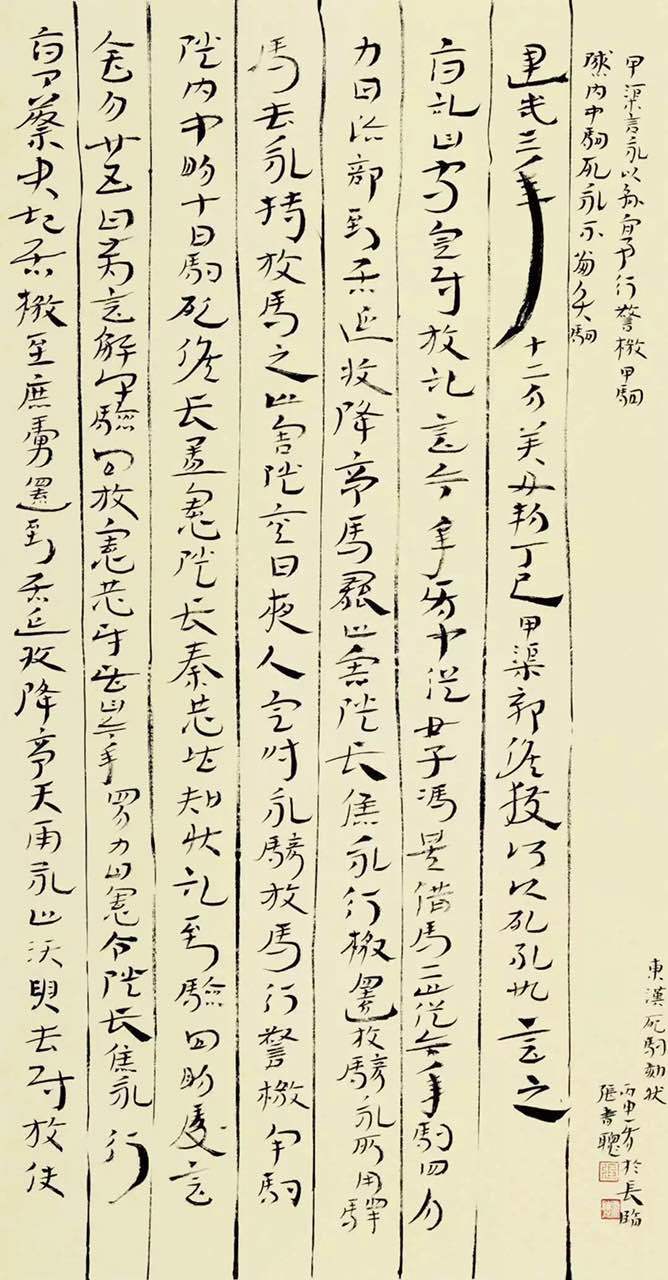 甲渠言永以縣官事行警檄牢駒
隧內中駒死永不當負駒
建武三年十二月癸丑朔丁巳甲渠鄣候獲叩頭死罪敢言之
府記曰守塞尉放記言今年正月中從女子馮昱借馬一匹從今年駒四月
九日詣部到居延收降亭馬罷止害隧長焦永行檄還放騎永所用驛
馬去永持放馬之止害隧其日夜人定時永騎放馬行警檄牢駒
隧內中明十日駒死候長孟憲隧長秦恭皆知狀記到驗問明處言
會月廿五日前言解謹驗問放憲恭辭皆曰今年四月九日憲令隧長焦永行
府卿蔡君起居檄至庶虜還到居延收降亭天雨永止須臾去尉放使
東漢死駒劾狀
丙申於長臨
張書聰